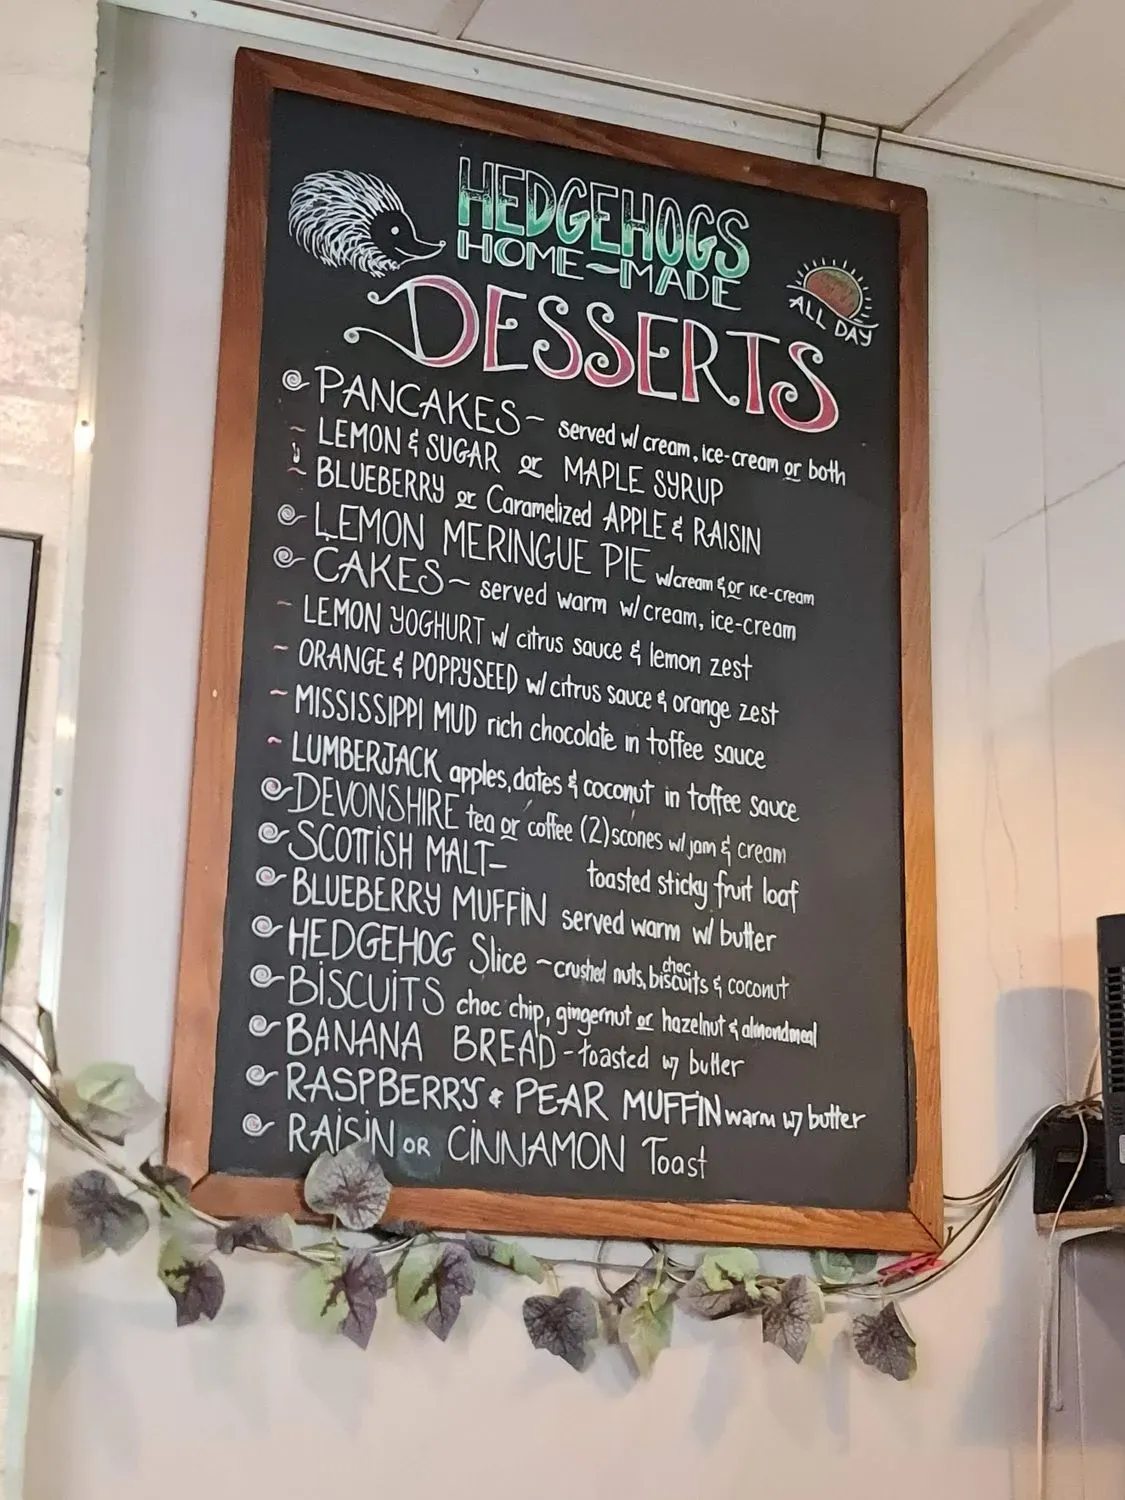 HEDGEHOGS
HOME-MADE
DESSERTS
ALL DAY
PANCAKES ~ served w/ cream, ice-cream or both
LEMON & SUGAR or MAPLE SYRUP
BLUEBERRY or Caramelized APPLE & RAISIN
LEMON MERINGUE PIE w/cream & or ice-cream
CAKES ~ served warm w/ cream, ice-cream
LEMON YOGHURT w/ citrus sauce & lemon zest
~ ORANGE & POPPYSEED w/ citrus sauce & orange zest
~ MISSISSIPPI MUD rich chocolate in toffee sauce
~ LUMBERJACK apples, dates & coconut in toffee sauce
DEVONSHIRE tea or coffee (2) scones w/ jam & cream
SCOTTISH MALT- toasted sticky fruit loaf
BLUEBERRY MUFFIN served warm w/ butter
HEDGEHOG Slice ~ crushed nuts, choc biscuits & coconut
BISCUITS choc chip, gingernut or hazelnut & almondmeal
BANANA BREAD - toasted w/ butter
RASPBERRY & PEAR MUFFIN warm w/ butter
RAISIN OR CINNAMON Toast